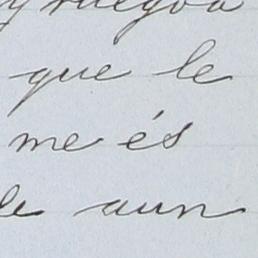 que le
me és
le aun